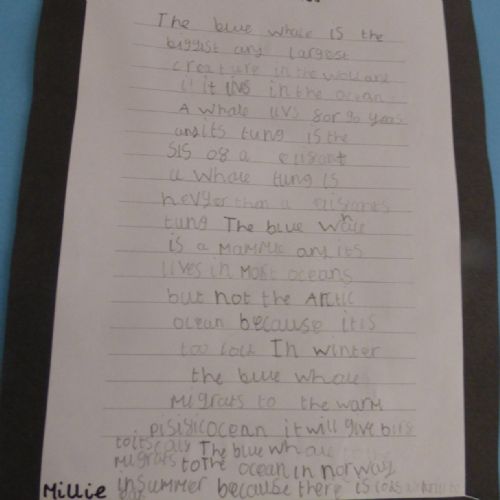 The blue whale is the
biggist any largest
creature in the world and
it livs in the ocean
A whale livs for 90 years
and its tung is the
sis of a elifant
a whale tung is
hevyer than a elifants
tung The blue whale
is a mammle and its
lives in most oceans
but not the Arctic
ocean because it is
too cold In winter
the blue whale
migrats to the warm
pisific ocean it will give
to its The blue whale
migrats to the ocean in norway
in summer because there is
Millie